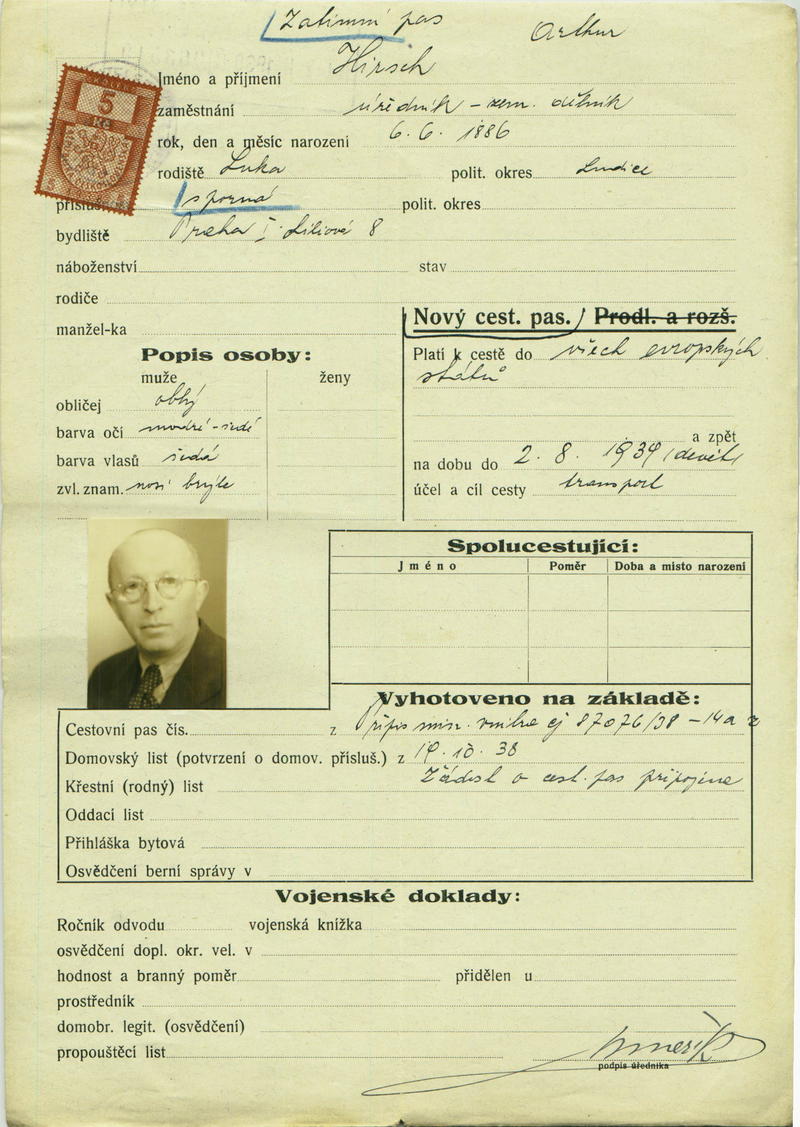 Zatímní pas
Arthur
Jméno a příjmení Hirsch
zaměstnání úředník - zem. dělník
rok, den a měsíc narození 6. 6. 1886
rodiště Luka polit. okres Ludice
5
Kč
přísluš sporná polit. okres
bydliště Praha I. Liliová 8
náboženství stav
rodiče
manžel-ka
Nový cest. pas. Prodl. a rozš.
Platí k cestě do všech evropských
států
a zpět
na dobu do 2. 8. 1939 (devět)
účel a cíl cesty transport
Popis osoby:
muže ženy
obličej oblý
barva očí modré-šedé
barva vlasů šedá
zvl. znam. nosí brýle
Spolucestující:
Jméno Poměr Doba a místo narození
Vyhotoveno na základě:
Cestovní pas čís. z Přípis min. vnitra čj 87076/38 - 14a z
Domovský list (potvrzení o domov. přísluš.) z 19. 10. 38
Křestní (rodný) list Žádost o cest. pas připojena
Oddací list
Přihláška bytová
Osvědčení berní správy v
Vojenské doklady:
Ročník odvodu vojenská knížka
osvědčení dopl. okr. vel. v
hodnost a branný poměr přidělen u
prostředník
domobr. legit. (osvědčení)
propouštěcí list
podpis úředníka